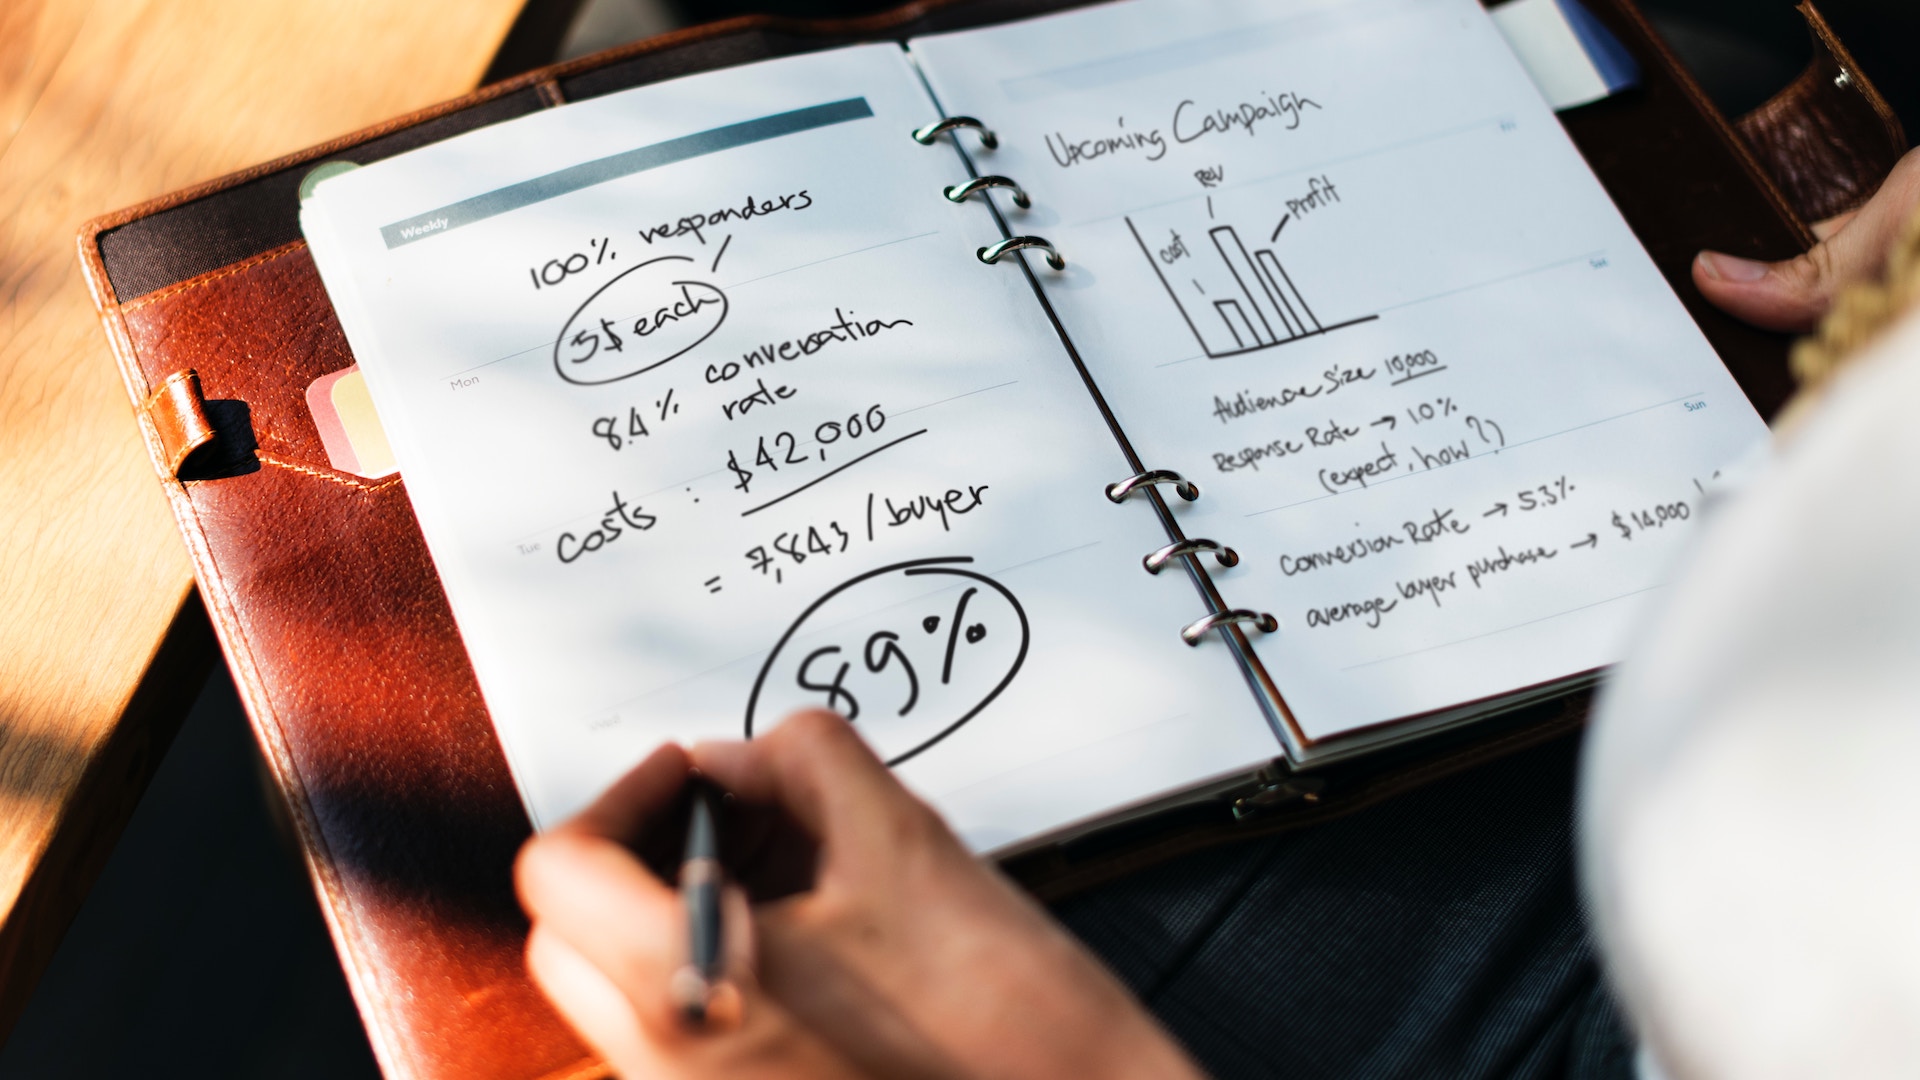 Weekly
100% responders
5$ each
Mon
8.4% conversation
rate
Tue
costs : $42,000
= 7,843 / buyer
Wed
89%
Upcoming Campaign
Fri
Rev
Profit
cost
Sat
Audience Size 10,000
Response Rate → 10%
(expect, how?)
Sun
Conversion Rate → 5.3%
average buyer purchase → $14,000